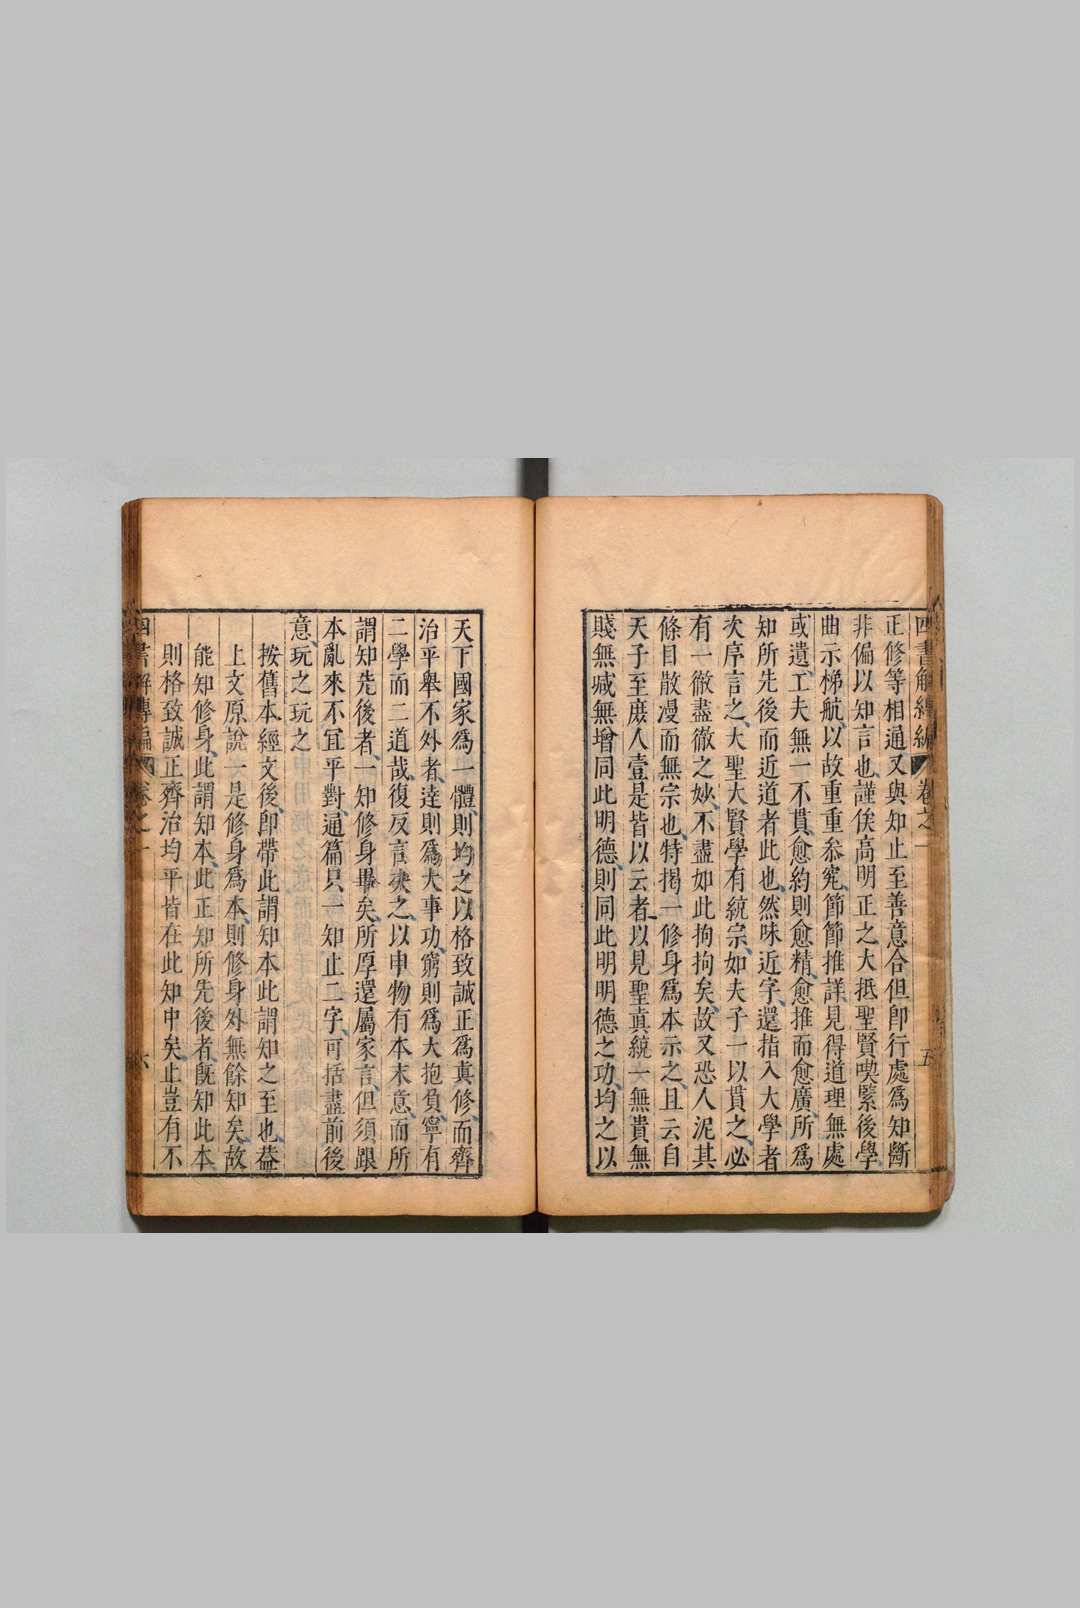 四書解縛編 卷之一 五
正修等相通又與知止至善意合但即行處爲知斷
非偏以知言也謹俟高明正之大抵聖賢喫緊後學
曲示梯航以故重重叅究節節推詳見得道理無處
或遺工夫無一不貫愈約則愈精愈推而愈廣所爲
知所先後而近道者此也然味近字還指入大學者
次序言之大聖大賢學有統宗如夫子一以貫之必
有一徹盡徹之妙不盡如此拘拘矣故又恐人泥其
條目散漫而無宗也特揭一修身爲本示之且云自
天子至庶人壹是皆以云者以見聖真統一無貴無
賤無減無增同此明德則同此明明德之功均之以
天下國家爲一體則均之以格致誠正爲真修而齊
治平舉不外者逹則爲大事功窮則爲大抱負寧有
二學而二道哉復反言決之以申物有本末意而所
謂知先後者一知修身畢矣所厚還屬家言但須跟
本亂來不宜平對通篇只一知止二字可括盡前後
意玩之玩之
按舊本經文後即帶此謂知本此謂知之至也葢
上文原說一是修身爲本則修身外無餘知矣故
能知修身此謂知本此正知所先後者旣知此本
則格致誠正齊治均平皆在此知中矣止豈有不
四書解縛編 卷之一 六